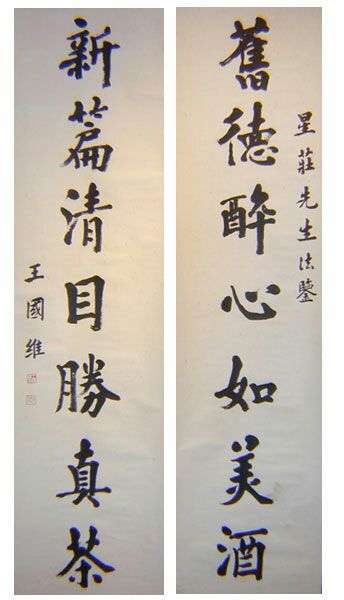 星莊先生法鑒
舊德醉心如美酒
新篇清目勝真茶
王國維